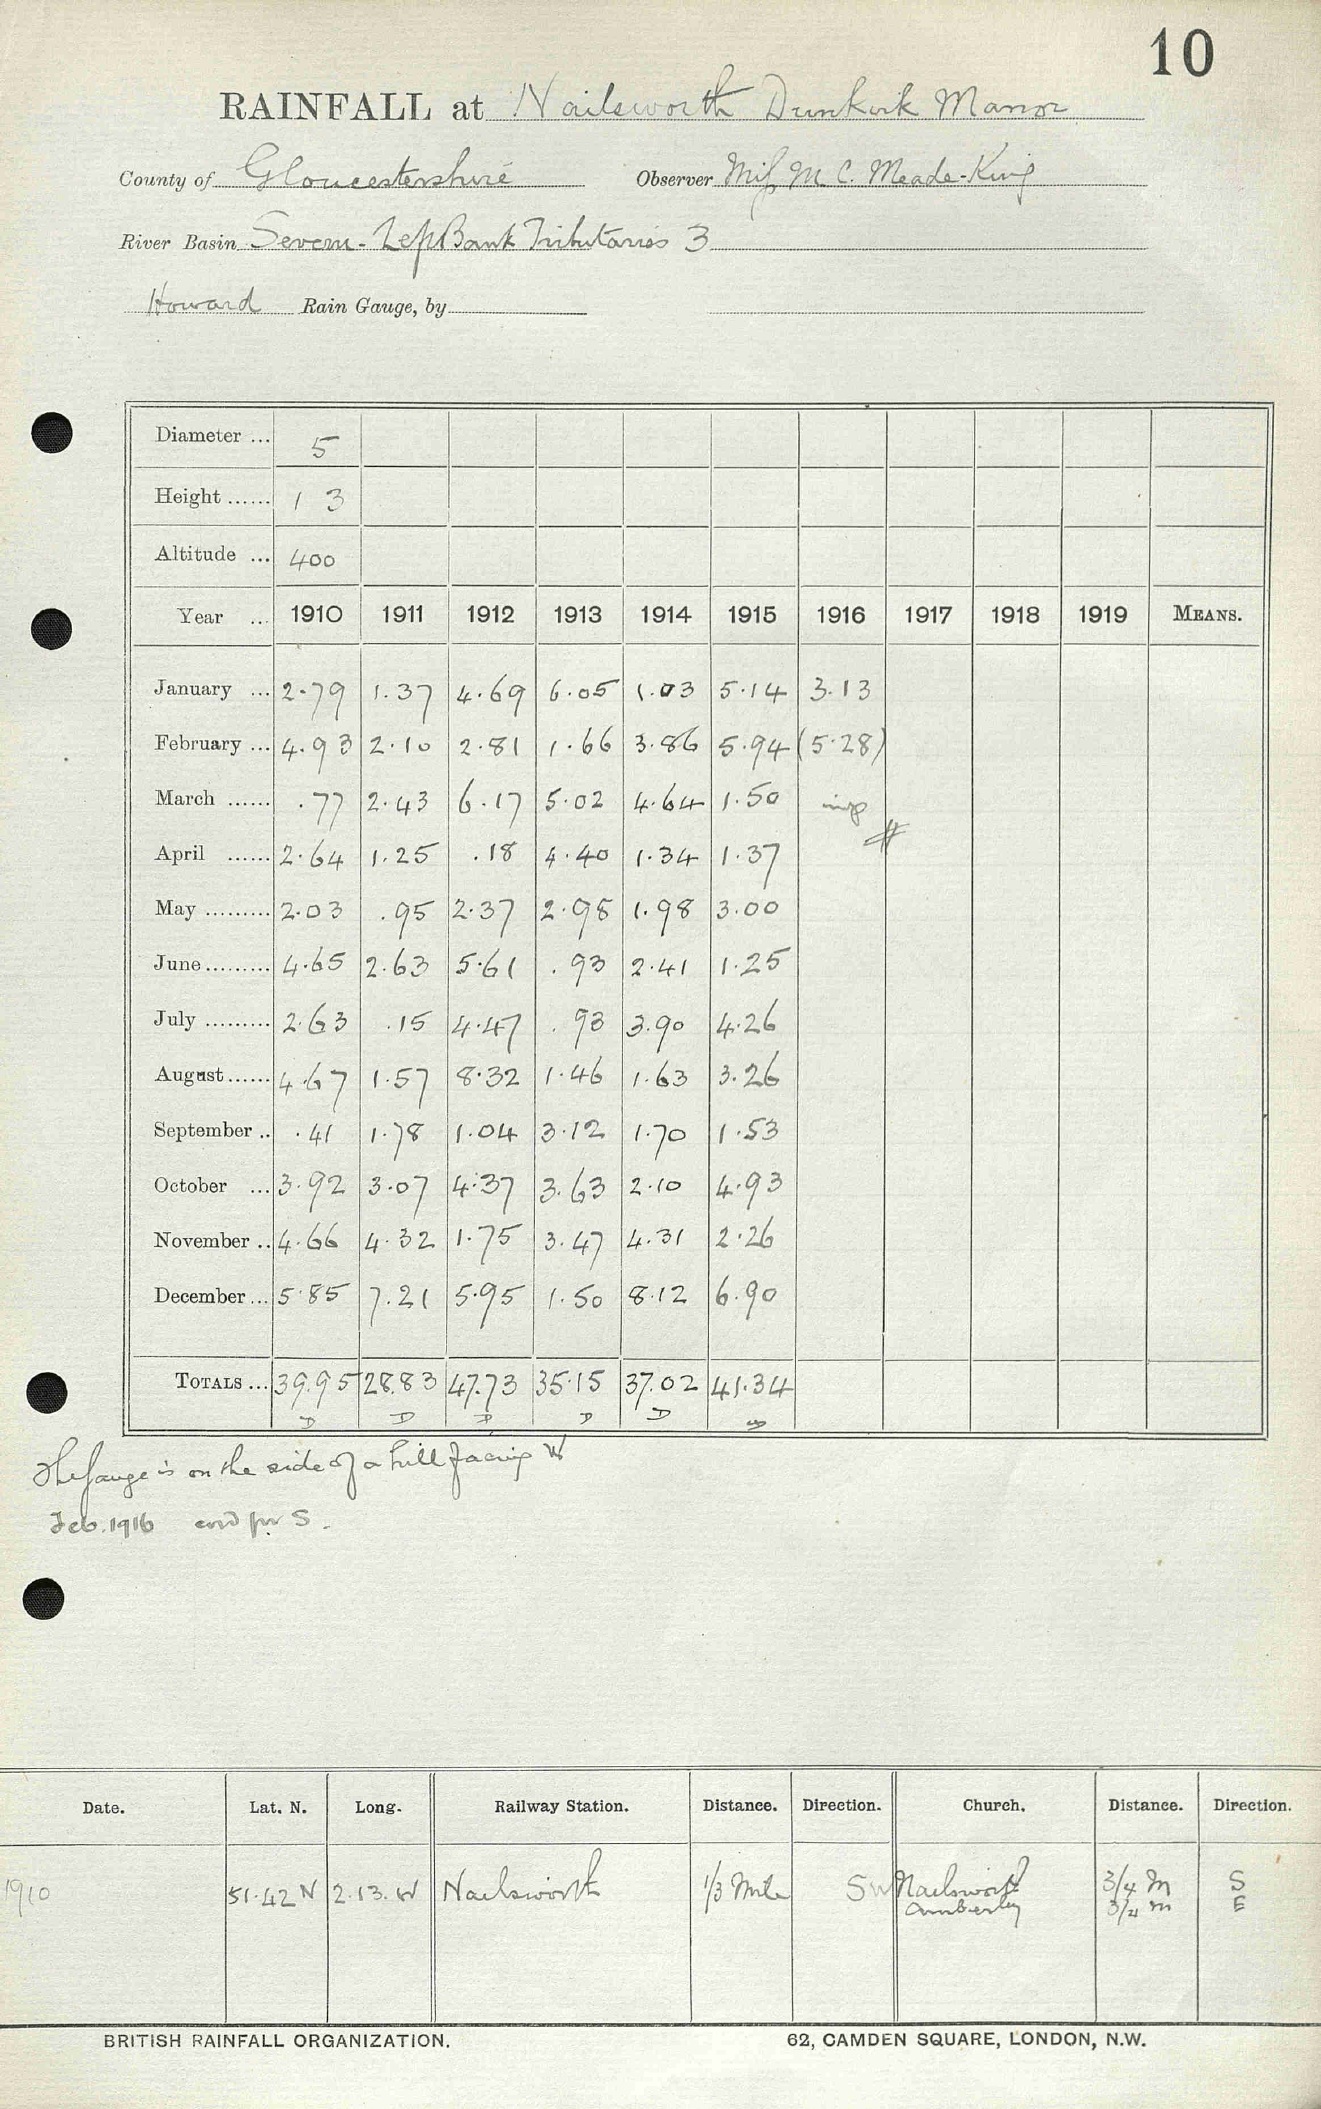 10
RAINFALL at Nailsworth Dunkirk Manor
County of Gloucestershire Observer Miss M C. Meade-King
River Basin Severn - Left Bank Tributaries 3
Howard Rain Gauge, by
Diameter ... 5
Height ...... 1 3
Altitude ... 400
Year ... 1910 1911 1912 1913 1914 1915 1916 1917 1918 1919 MEANS.
January ... 2.79 1.37 4.69 6.05 1.03 5.14 3.13
February ... 4.93 2.10 2.81 1.66 3.86 5.94 (5.28)
March ...... .77 2.43 6.17 5.02 4.64 1.50 imp
#
April ...... 2.64 1.25 .18 4.40 1.34 1.37
May ......... 2.03 .95 2.37 2.98 1.98 3.00
June ......... 4.65 2.63 5.61 .93 2.41 1.25
July ......... 2.63 .15 4.47 .93 3.90 4.26
August ...... 4.67 1.57 8.32 1.46 1.63 3.26
September .. .41 1.78 1.04 3.12 1.70 1.53
October ... 3.92 3.07 4.37 3.63 2.10 4.93
November .. 4.66 4.32 1.75 3.47 4.31 2.26
December ... 5.85 7.21 5.95 1.50 8.12 6.90
TOTALS ... 39.95 28.83 47.73 35.15 37.02 41.34
D D D D D
The gauge is on the side of a hill facing W
Feb. 1916 for S.
Date. Lat. N. Long. Railway Station. Distance. Direction. Church. Distance. Direction.
1910 51.42 N 2.13. W Nailsworth 1/3 Mile SW Nailsworth 3/4 M S
Amberley 3/4 m E
BRITISH RAINFALL ORGANIZATION. 62, CAMDEN SQUARE, LONDON, N.W.